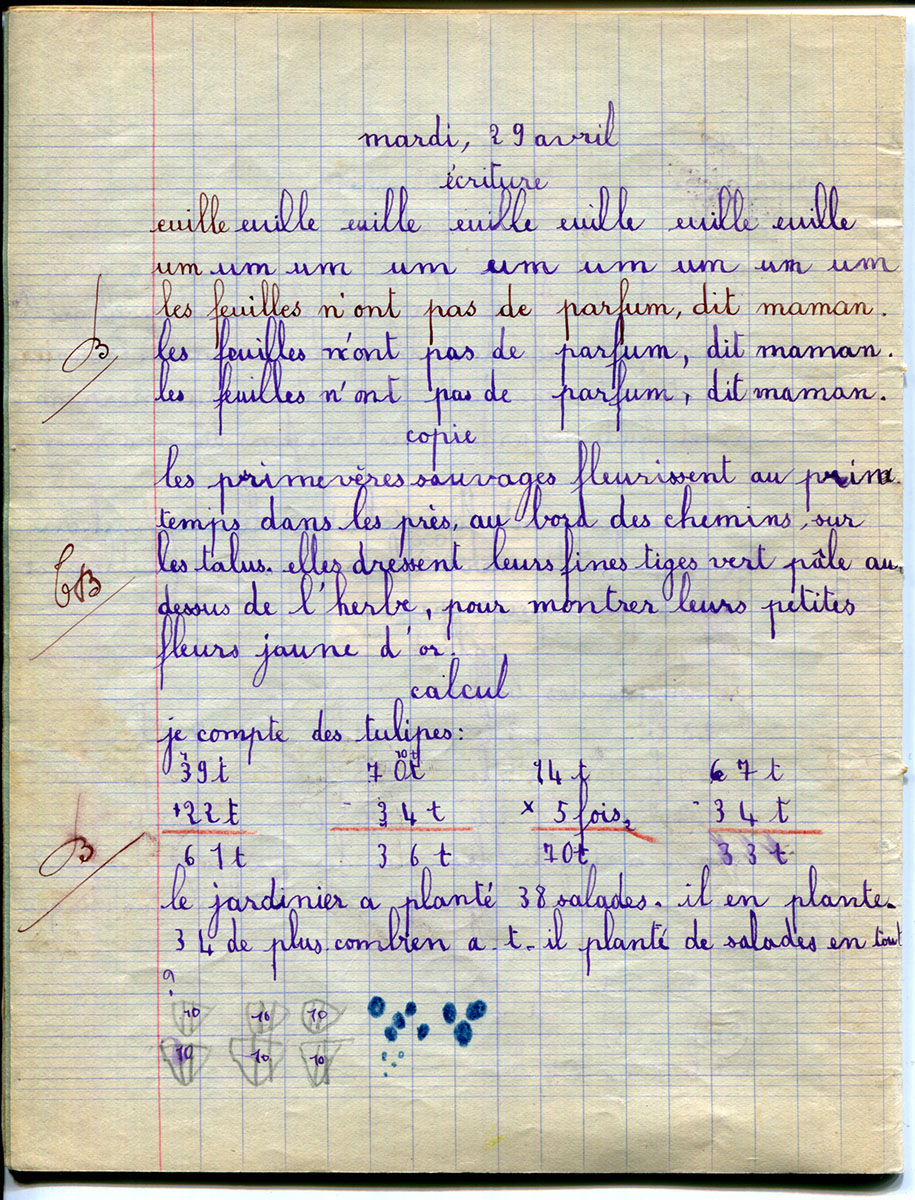 mardi, 29 avril
écriture
euille euille euille euille euille euille euille
um um um um um um um um um
les feuilles n'ont pas de parfum, dit maman.
les feuilles n'ont pas de parfum, dit maman.
les feuilles n'ont pas de parfum, dit maman.
B
copie
les primevères sauvages fleurissent au prin
temps dans les près, au bord des chemins, sur
les talus. elles dressent leurs fines tiges vert pâle au-
TB
dessus de l'herbe, pour montrer leurs petites
fleurs jaune d'or.
calcul
je compte des tulipes:
39t 70t 14t 67t
+22t - 34t × 5 fois - 34t
B
61t 36t 70t 33t
le jardinier a planté 38 salades. il en plante
34 de plus. combien a-t-il planté de salades en tout
?
10 10 10
10 10 10